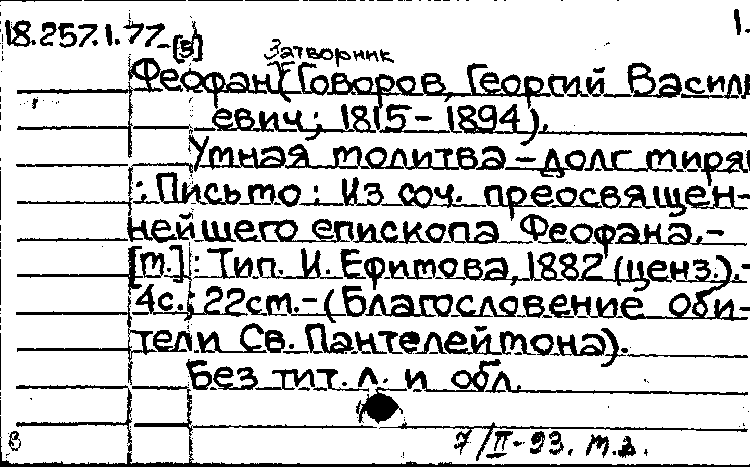 18.257.1.77-[3] 1.
Затворник
Феофан (Говоров, Георгий Васили
евич; 1815-1894).
Умная молитва - долг мирян
: Письмо : Из соч. преосвящен-
нейшего епископа Феофана.-
[М.] : Тип. И. Ефимова, 1882 (ценз.).-
4с.; 22см.-(Благословение оби-
тели Св. Пантелеймона).
Без тит. л. и обл.
7/II-93. М.З.